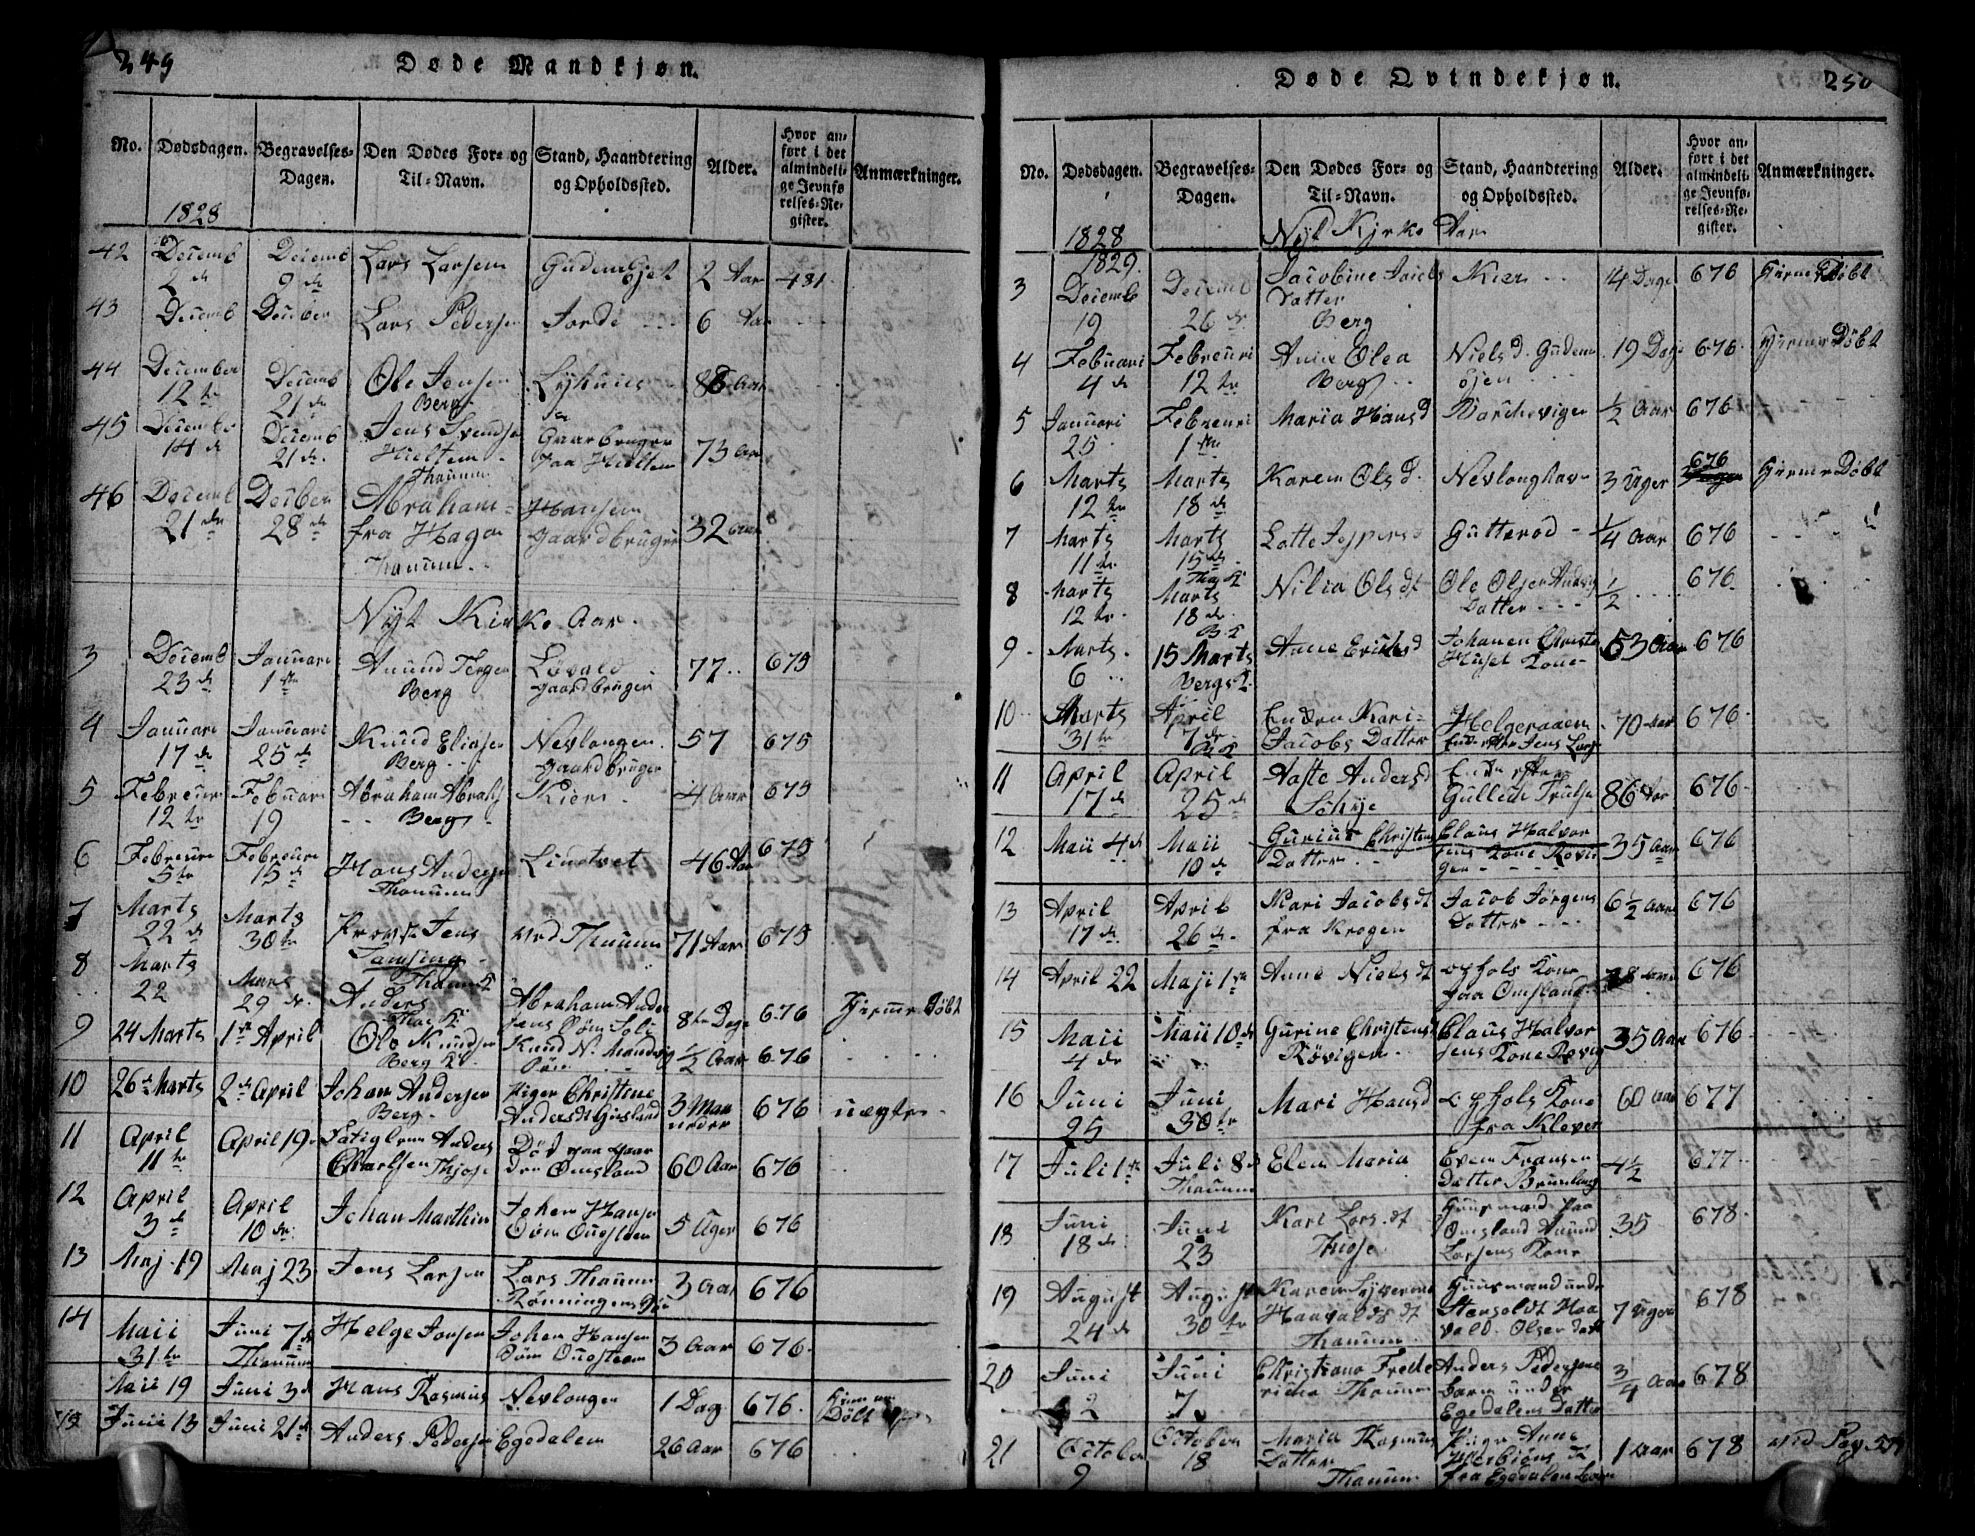 249
Døde Mandkjøn.
No. Dødsdagen. Begravelses-Dagen. Den Dødes For- og Til-Navn. Stand, Haandtering og Opholdssted. Alder. Hvor anført i det almindelige Jevnførelses-Register. Anmærkninger.
1828
42 Decemb 2 d Decemb 9 d Lars Larsen 2 Aar 481
43 Decemb Deciber Lars Pedersen Jorde 6 Aar
44 December 12 te Decemb 21 d Ole Jensen Berg
45 Decembe 14 d Decemb 21 d Jens Svendse Hieltem Thanum Gaarbruger paa Hieltem 73 Aar
46 Decemb 21 de Deciber 28 d Abraham Hansen fra Hagen Thanum Gaardbruger 32 Aar
Nyt Kirke Aar.
3 Decemb 23 d Januari 1 ste Amund Berg Løvald Gaardbruger 77 675
4 Januari 17 d Januari 25 d Knud Eliasen Berg Nevlongen Gaardbruger 57 675
5 Febreuri 12 te Febuari 19 Abraham Abrahs Berg Kier 4 Aar 675
6 Febreuri 5 te Febreuri 15 d Hans Andersen Thanum Lindtvet 46 Aar 675
7 Marts 22 d Marts 30 te Provst Jens ved Thanum 71 Aar 675
8 Marts 22 Mars 29 d Anders Abraham Anders 8 te Dage 676 Hieme Døbt
9 24 Marts 1 ste April Ole Knudsen Berg K Knud N. 1/2 Aar 676
10 26 d Marts 2 d April Johan Andersen Berg Piger Christene Andersdt 3 Maaneder 676 uægte
11 April 11 te April 19 Anders Charlsen Thjose Omsland 60 Aar 676
12 April 3 d April 10 de Johan Marthin Johen Hansen 5 Uger 676
13 Maj 19 Maj 23 Jens Larsen Lars Thanum Rønningen 3 Aar 676
14 Maii 31 te Juni 7 d Thanum Helge Jonsen Johen Hansen 3 Aar 676
Maii 19 Juni 3 d Hans Rasmus Nevlongen 1 Dag 676 Døbt
Junii 13 Juni 21 d Anders Pedersen Egedalen 26 Aar 676
250
Døde Qvindekjøn.
No. Dødsdagen. Begravelses-Dagen. Den Dødes For- og Til-Navn. Stand, Haandtering og Opholdssted. Alder. Hvor anført i det almindelige Jevnførelses-Register. Anmærkninger.
1828 Nyt Kirke Aar
1829.
3 Decemb 19 Decemb 26 d Jacobine Datter Berg Kier 14 Dage 676 Hieme Døbt
4 Febuari 4 d Febreuri 12 te Anne Olea Berg Niels d. 19 Dage 676 Hieme Døbt
5 Januari 25 Febreuri 1 ste Maria Hans d Barchevigen 1/2 Aar 676
6 Marts 12 te Marts 18 d Karen Ols d. Nevlonghavn 3 Uger 676 Hieme Døbt
7 Marts 11 te Marts 15 d Lotte Jespers d Gutterød 1/4 Aar 676
8 Marts 12 te Marts 18 d Nilia Ols dt Ole Olsen Datter 1/2 676
9 Marts 6 15 Marts Bergs K Anne Erichsd Johanen Christ Kone 53 Aar 676
10 Marts 31 te April 7 d Enken Kari Jacobs Datter Helgeraaen Enke efter Jens Lars 70 Aar 676
11 April 17 d April 25 d Aaste Andersd Enke efter Gullech Trulse 86 Aar 676
12 Maii 4 d Maii 10 d Gurine Christens Datter Claus Halvorsens Kone Røvigen 35 Aar 676
13 April 17 d April 26 d Mari Jacobs dt fra Krogen Jacob Jørgens Datter 6 1/2 Aar 676
14 April 22 Maji 1 ste Anne Niels dt Kone fra Omsland 676
15 Maii 4 de Maii 10 de Gurine Christensd Røvigen Claus Halvorsens Kone Røvig 35 Aar 676
16 Juni 25 Juni 30 te Mari Hans d Kone fra Klever 60 Aar 677
17 Juli 1 ste Juli 8 d Thanum Elen Maria Even Fransen Datter 4 1/2 677
18 Juni 18 d Juni 23 Kari Lars dt Thjose Huusmand paa Omsland Amund Larsens Kone 35 678
19 August 24 d August 30 te Karen Haavalds dt Thanum Huusmand under Haavald Olsen Datt 7 Uger 678
20 Juni 2 Juni 7 Christiana Frederica Thanum Anders Pedersens Barn under Egedalen Datter 3/4 Aar 678
21 October 9 October 18 Maria Rasmus Datter Thanum Pige Anne fra Egedalen 1 Aar 678 vid Pag